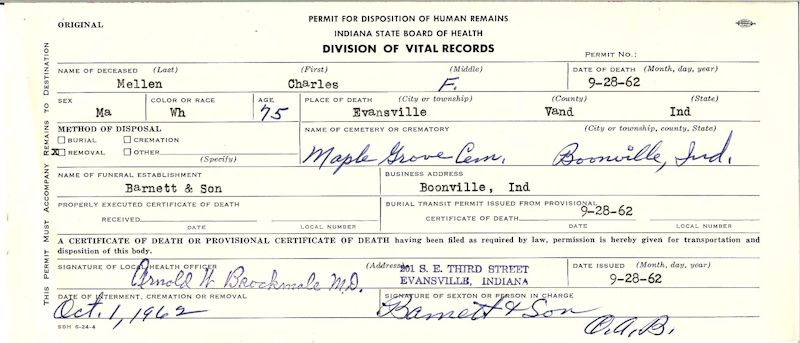 ORIGINAL
PERMIT FOR DISPOSITION OF HUMAN REMAINS
INDIANA STATE BOARD OF HEALTH
DIVISION OF VITAL RECORDS
PERMIT NO.:
THIS PERMIT MUST ACCOMPANY REMAINS TO DESTINATION
NAME OF DECEASED (Last) (First) (Middle) DATE OF DEATH (Month, day, year)
Mellen Charles F. 9-28-62
SEX COLOR OR RACE AGE PLACE OF DEATH (City or township) (County) (State)
Ma Wh 75 Evansville Vand Ind
METHOD OF DISPOSAL NAME OF CEMETERY OR CREMATORY (City or township, county, State)
BURIAL CREMATION
X REMOVAL OTHER (Specify) Maple Grove Cem. Boonville, Ind.
NAME OF FUNERAL ESTABLISHMENT BUSINESS ADDRESS
Barnett & Son Boonville, Ind
PROPERLY EXECUTED CERTIFICATE OF DEATH BURIAL TRANSIT PERMIT ISSUED FROM PROVISIONAL
RECEIVED CERTIFICATE OF DEATH 9-28-62
DATE LOCAL NUMBER DATE LOCAL NUMBER
A CERTIFICATE OF DEATH OR PROVISIONAL CERTIFICATE OF DEATH having been filed as required by law, permission is hereby given for transportation and
disposition of this body.
SIGNATURE OF LOCAL HEALTH OFFICER (Address) DATE ISSUED (Month, day, year)
Arnold W Brockmole M.D. 201 S. E. THIRD STREET
EVANSVILLE, INDIANA 9-28-62
DATE OF INTERMENT, CREMATION OR REMOVAL SIGNATURE OF SEXTON OR PERSON IN CHARGE
Oct. 1, 1962 Barnett & Son
O.A.B.
SBH 6-24-4